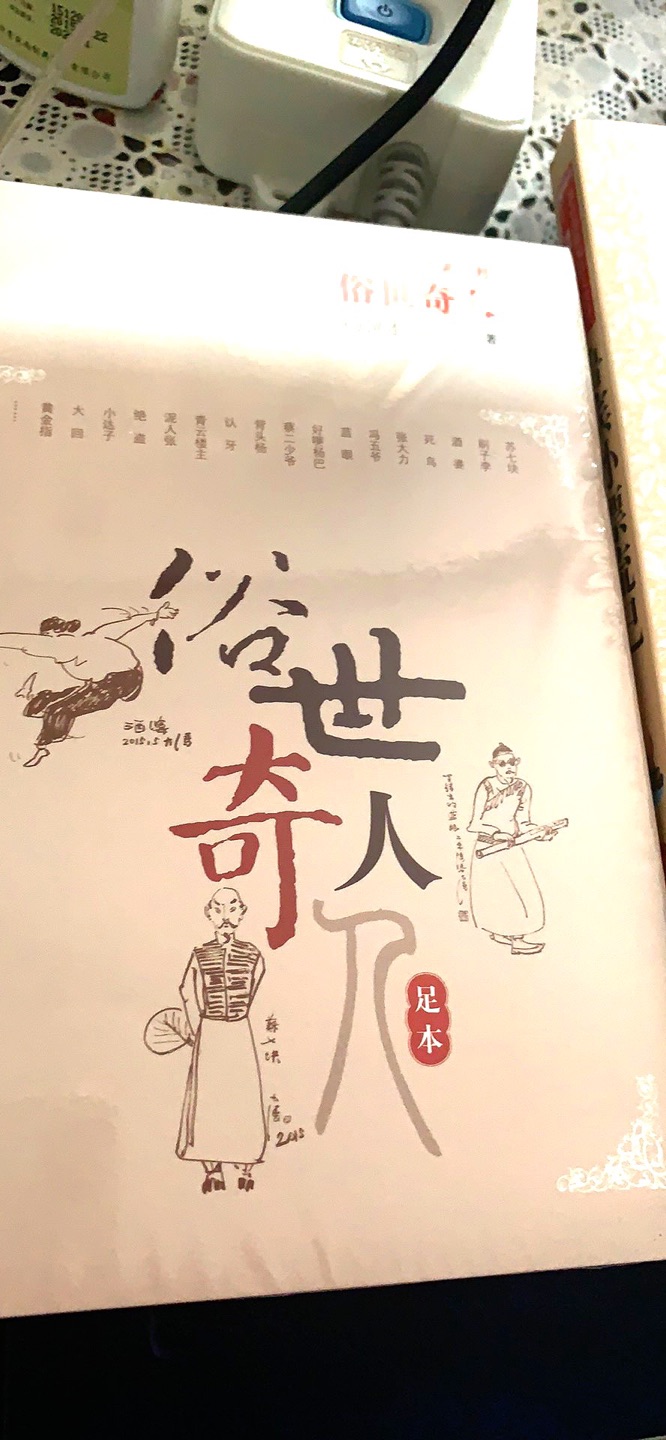 有限公司
俗世奇人
著
苏七块
刷子李
酒婆
死鸟
张大力
冯五爷
蓝眼
好嘴杨巴
蔡二少爷
背头杨
认牙
青云楼主
泥人张
绝盗
小达子
大回
黄金指
……
俗世
奇人
人
足本
2015.5
蘇七块
2015